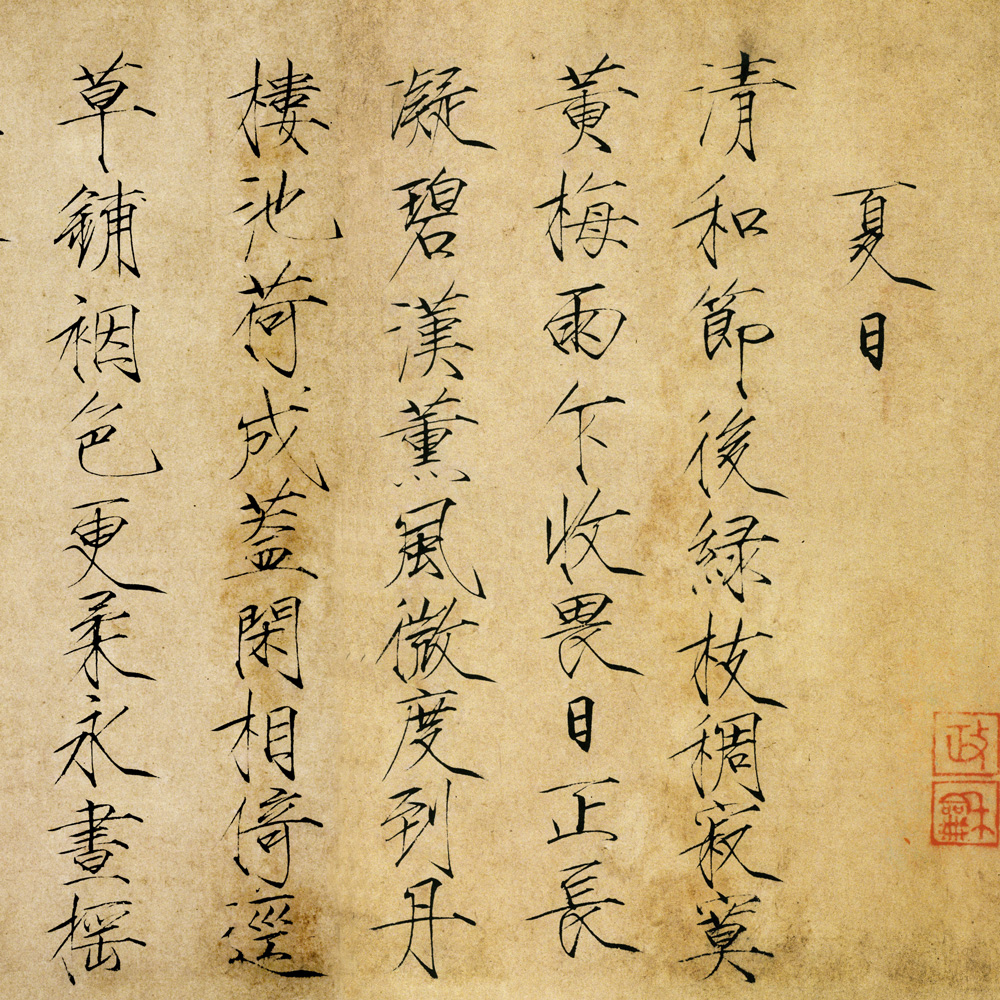 夏日
清和節後綠枝稠寂寞
黄梅雨乍收畏日正長
凝碧漢薰風微度到丹
樓池荷成蓋閑相倚逕
草鋪裀色更柔永晝搖
政
龢